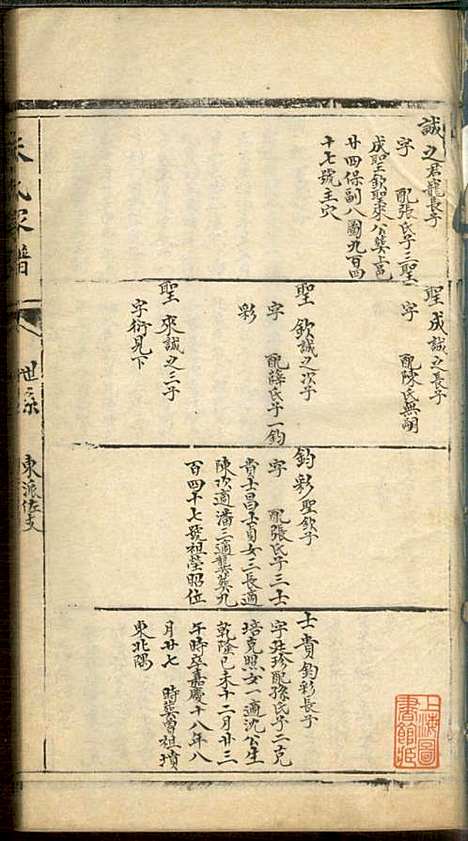 誠之君龍長子
字 配張氏子三聖
成聖欽聖來公葬上邑
廿四保副八圖九百四
十七號主穴
聖成誠之長子
字 配陳氏無嗣
聖欽誠之次子
字 配薛氏子一鈞
彩
聖來誠之三子
字衍見下
鈞彩聖欽子
字 配張氏子三士
貴士昌士貞女三長適
陳次適潘三適龔葬九
百四十七號祖塋昭位
士貴鈞彩長子
字廷珍配孫氏子二克
培克照女一適沈公生
乾隆己未十二月廿三
午時卒嘉慶十八年八
月廿七 時葬曾祖墳
東北隅
朱氏家譜
世系
東派佐支
上海圖
書館藏